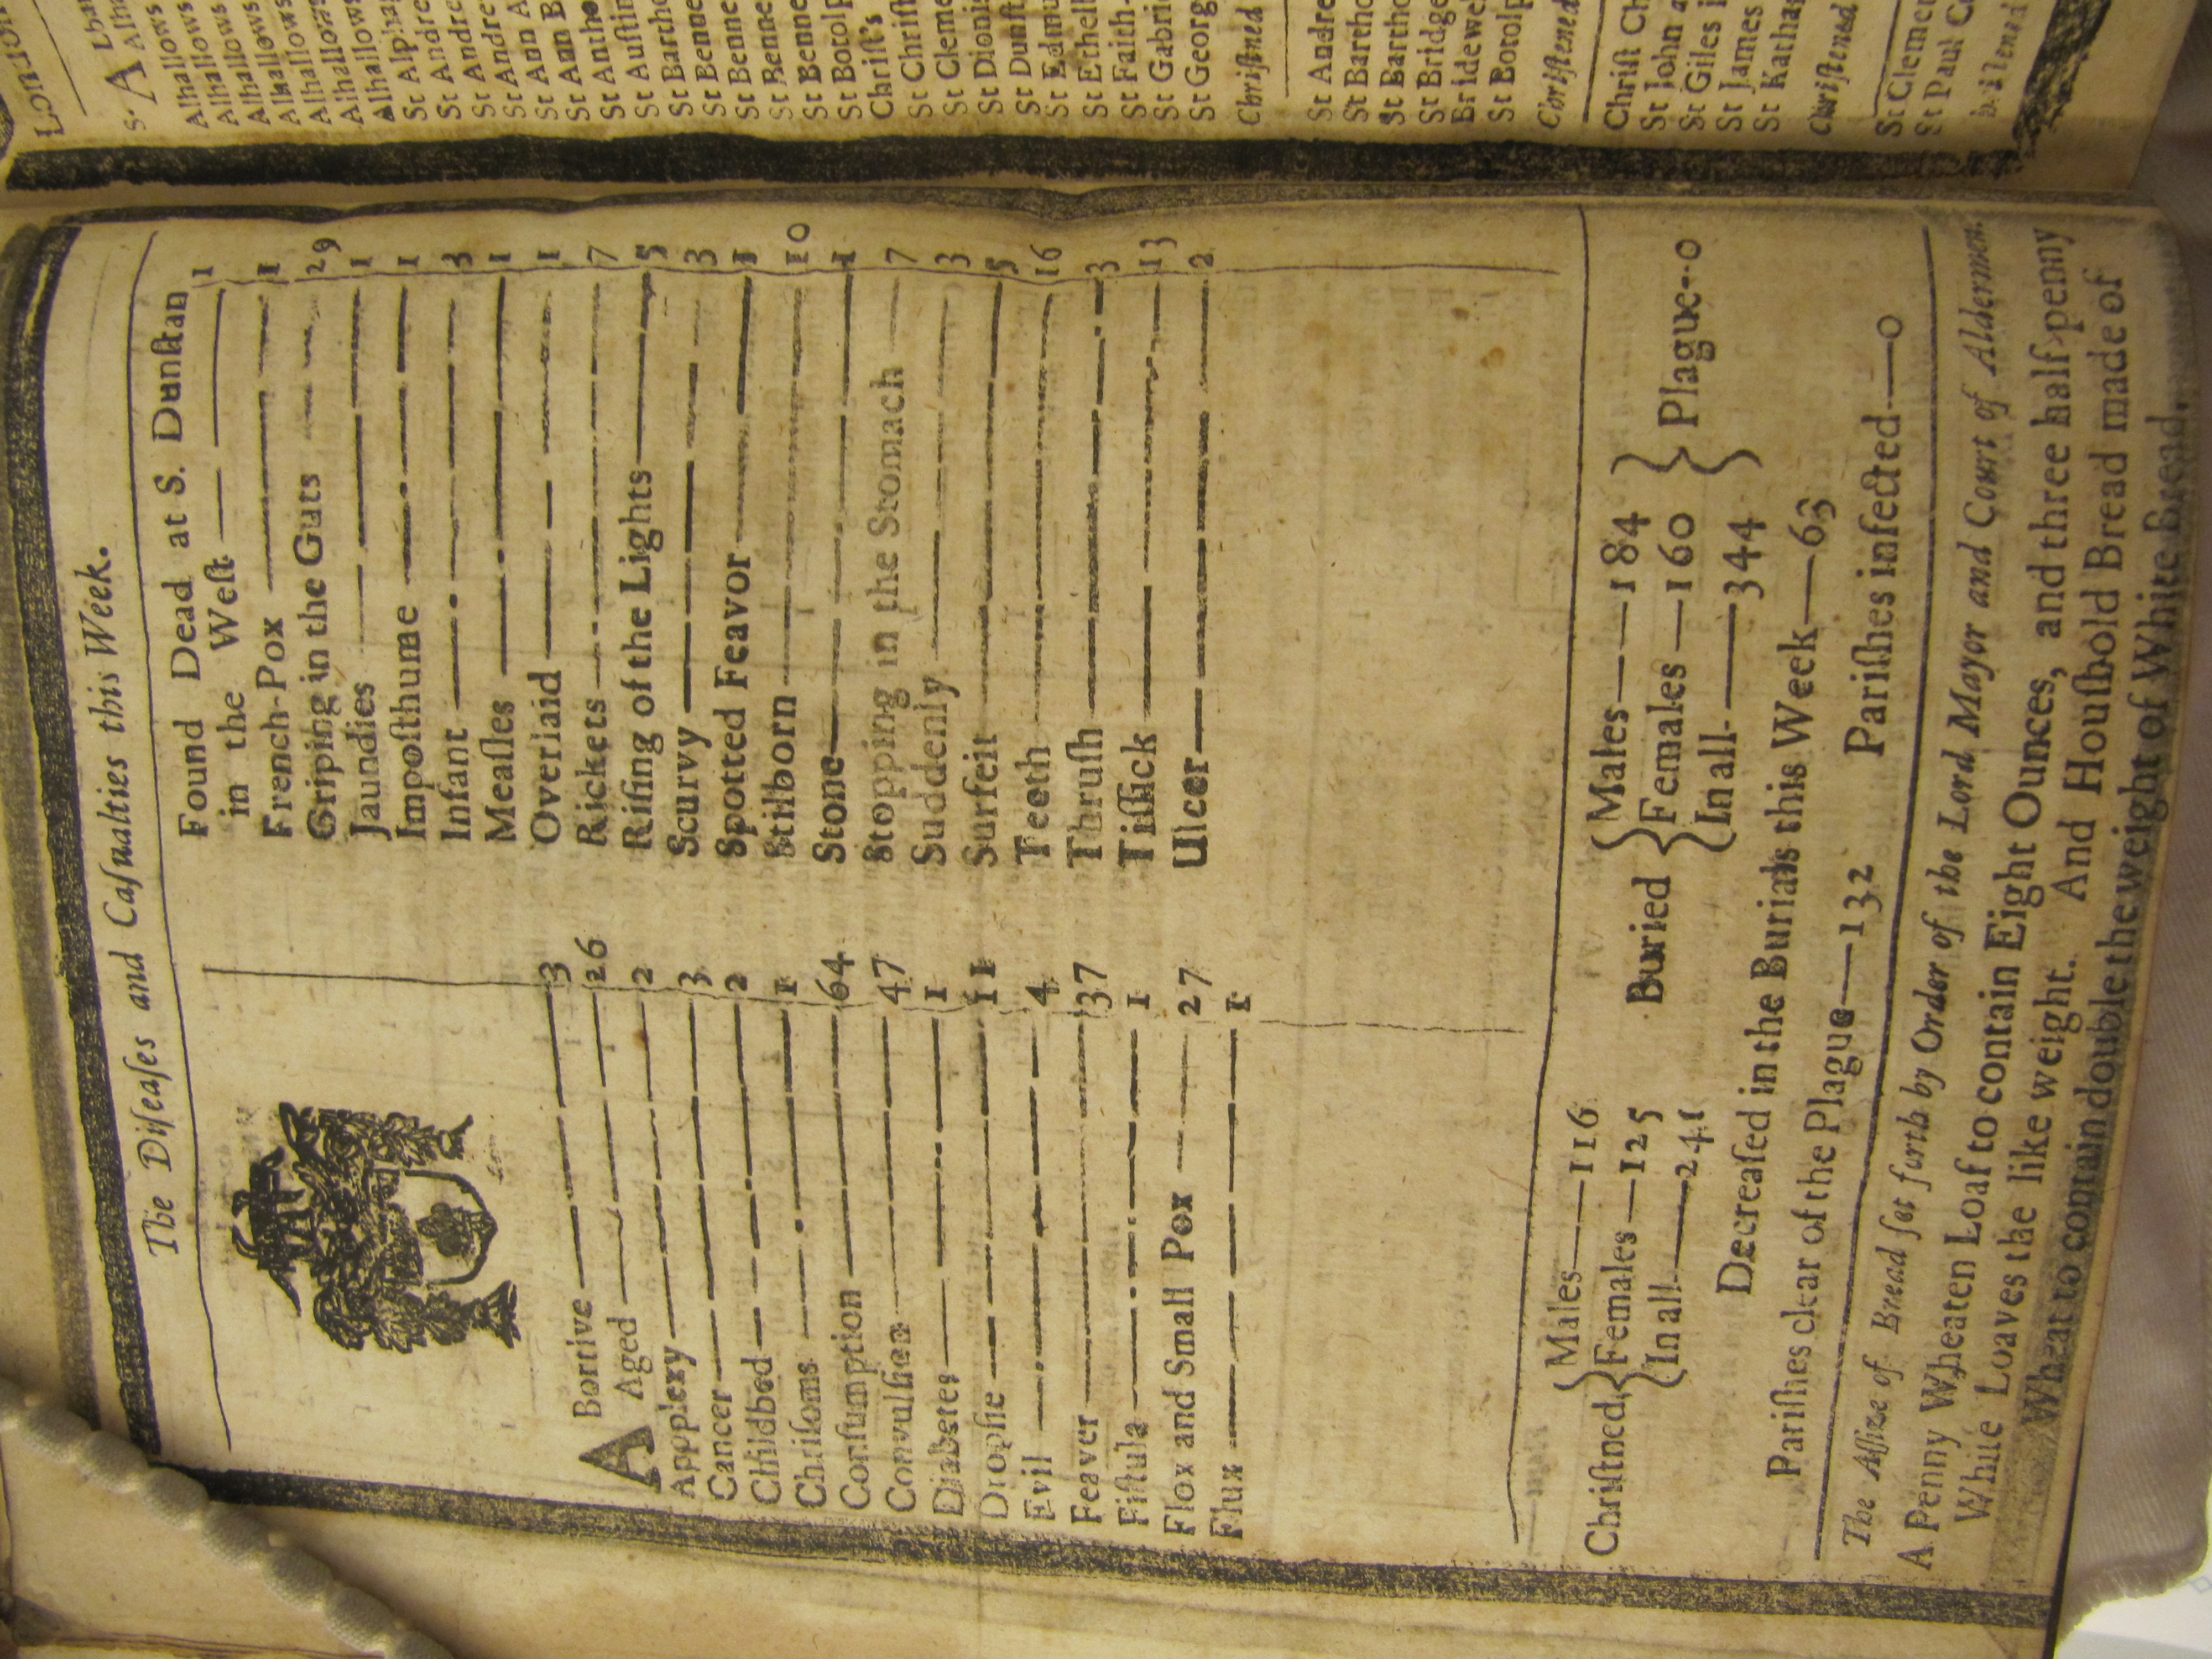 The Diſeaſes and Caſualties this Week.
ABortive 3
Aged 26
Applexy 2
Cancer 3
Childbed 2
Chriſoms 1
Conſumption 64
Convulſion 47
Diabetes 1
Dropſie 11
Evil 4
Feaver 37
Fiſtula 1
Flox and Small Pox 27
Flux 1
Found Dead at S. Dunſtan
in the Weſt 1
French-Pox 1
Griping in the Guts 29
Jaundies 1
Impoſthume 1
Infant 3
Meaſles 1
Overlaid 1
Rickets 7
Riſing of the Lights 5
Scurvy 3
Spotted Feavor 1
Stilborn 10
Stone 1
Stopping in the Stomach 7
Suddenly 3
Surfeit 5
Teeth 16
Thruſh 3
Tiſſick 13
Ulcer 2
Chriſtned { Males—116
Females—125
In all—241
Buried { Males—184
Females—160
In all—344 } Plague--0
Decreaſed in the Burials this Week—63
Pariſhes clear of the Plague—132 Pariſhes infected—0
The Aſſize of Bread ſet forth by Order of the Lord Mayor and Court of Aldermen.
A Penny Wheaten Loaf to contain Eight Ounces, and three half-penny
White Loaves the like weight. And Houſhold Bread made of
Wheat to contain double the weight of White Bread.
S. A
Alhallows
Alhallows
Alhallows
Alhallows
Alhallows
Alhallows
Alhallows
St Alpha
St Andre
St Andre
St Andre
St Ann A
St Ann B
St Antho
St Auſtin
St Bartho
St Benne
St Benne
St Benne
St Benne
St Botolp
Chriſt's
St Chriſt
St Cleme
St Dionis
St Dunſt
St Edmu
St Ethel
St Faith
St Gabri
St Georg
Chriſtned
St Andre
St Bartho
St Bartho
St Bridge
Bridewel
St Botolp
Chriſtened
Chriſt Ch
St John a
St Giles i
St James
St Katha
Chriſtened
St Clemen
St Paul C